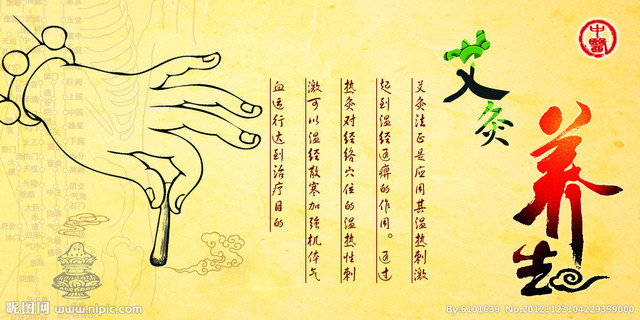 中醫
艾灸
养生
艾灸法正是应用其温热刺激
起到温经通痹的作用。通过
热灸对经络穴位的温热性刺
激可以温经散寒加强机体气
血运行达到治疗目的
昵图网
www.nipic.com
By:6101639 No.20121123104229399000